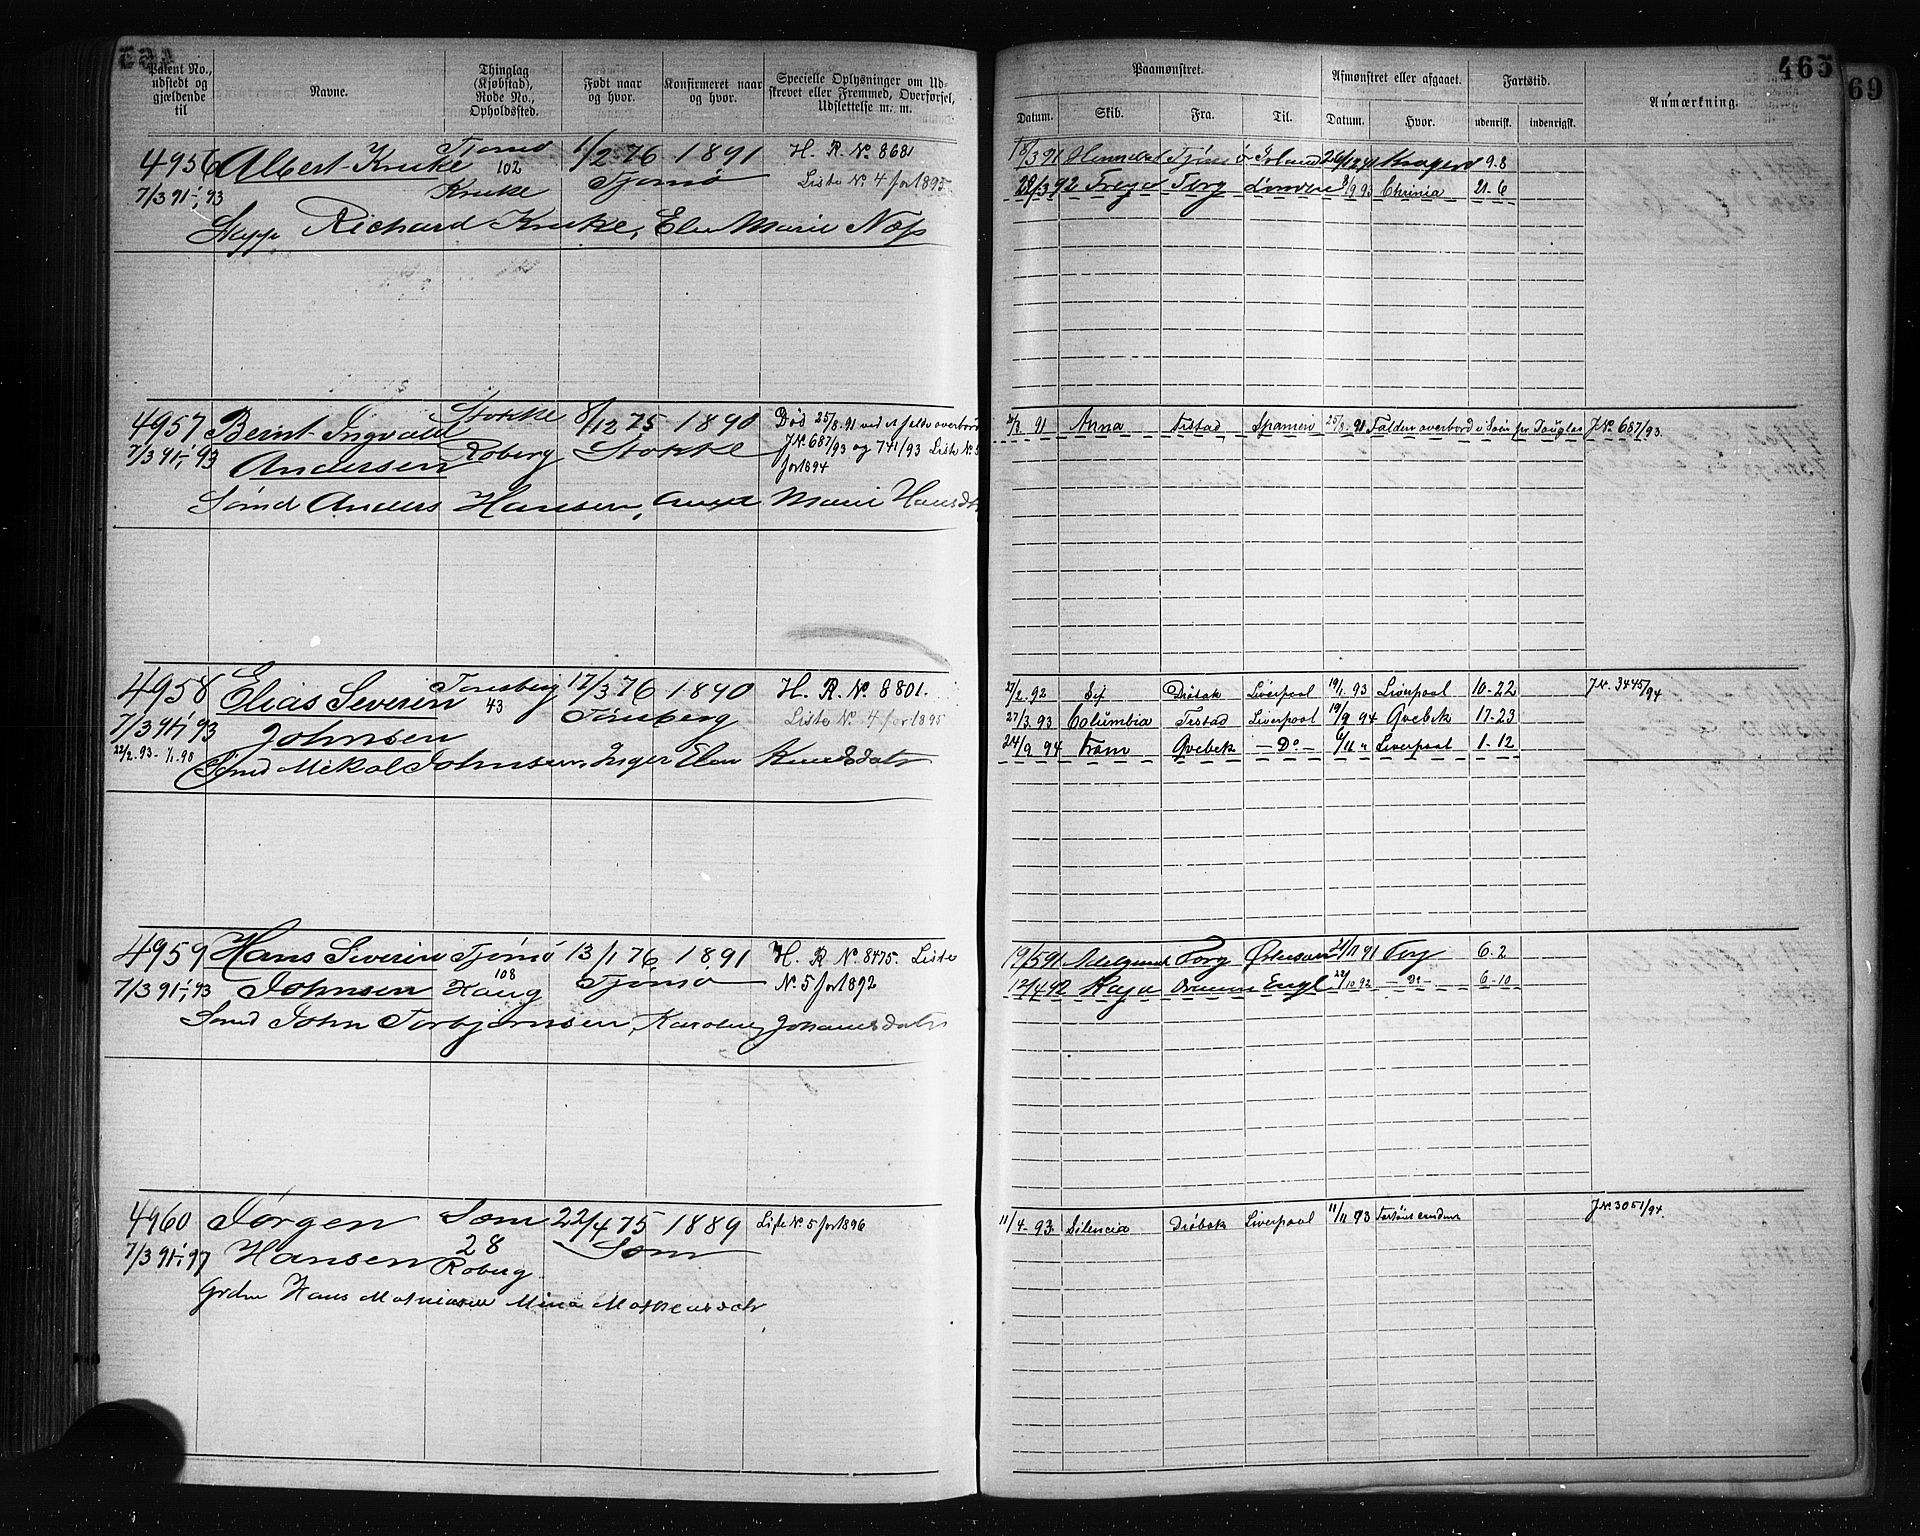 465
69
Patent No., udstedt og gjældende til
Navne.
Thinglag (Kjøbstad), Rode No., Opholdssted.
Født naar og hvor.
Konfirmeret naar og hvor.
Specielle Oplysninger om Udskrevet eller Fremmed, Overførsel, Udslettelse m. m.
Paamønstret.
Afmønstret eller afgaaet.
Fartstid.
Anmærkning.
Datum. Skib. Fra. Til. Datum. Hvor. udenrigsk. indenrigsk.
4956 Albert Kruke Tjømø 1/2 76 1891 H. R. No 8681
7/3 91-, 93 102 Kruke Tjømø Liste No. 4 for 1895.
Richard Kruke, Elen Marie Næss
18/3 91 Tjømø 9.8
28/3 92 Freya Torg 8/9 93 Chrinia 21.6
4957 Bernt Ingvald Stokke 8/12 75 1890 Død 25/8.91 ved at falde overbord
7/3 91-, 93 Andersen Roberg Stokke J No. 687/93 og 741/93 Liste No.
for 1894
Sønd Anders Hansen, Marie Hansdtr
91 Anna Frstad Spanien 25/8. 91 Falden overbord J No. 687/93.
4958 Elias Severin Tønsberg 17/3 76 1890 H. R. No 8801.
7/3 91-, 93 Johnsen 43 Tønsberg Liste No. 4 for 1895
22/2.93- 1/1.98
Sønd Mikal Johnsen, Inger Elen Knudsdatr
27/2. 92 Drøbak Liverpool 19/1. 93 Liverpool 10-22 J No. 3445/94
27/3.93 Columbia Frstad Liverpool 19/9 94 Qvebek 17-23
24/9 94 Fram Qvebek - Do - 6/11 " Liverpool 1-12
4959 Hans Severin Tjømø 13/1 76 1891 H. R No 8475. Liste
7/3 91-, 93 Johnsen 108 Haug Tjømø No. 5 for 1892
Sønd John Torbjørnsen, Karoline Johannesdatr
19/5 91 Torg 21/11 91 6.2
12/4 92 Kaja Engl 22/10 92 - Do - 6-10
4960 Jørgen Sem 22/4 75 1889 Liste No. 5 for 1896
7/3 91-, 97 Hansen 28 Roberg Sem
Hans Mathiasen Mina Mathiasdatr
11/4-93. Silencia Drøbak Liverpool 11/11 93 J No. 3051/94.